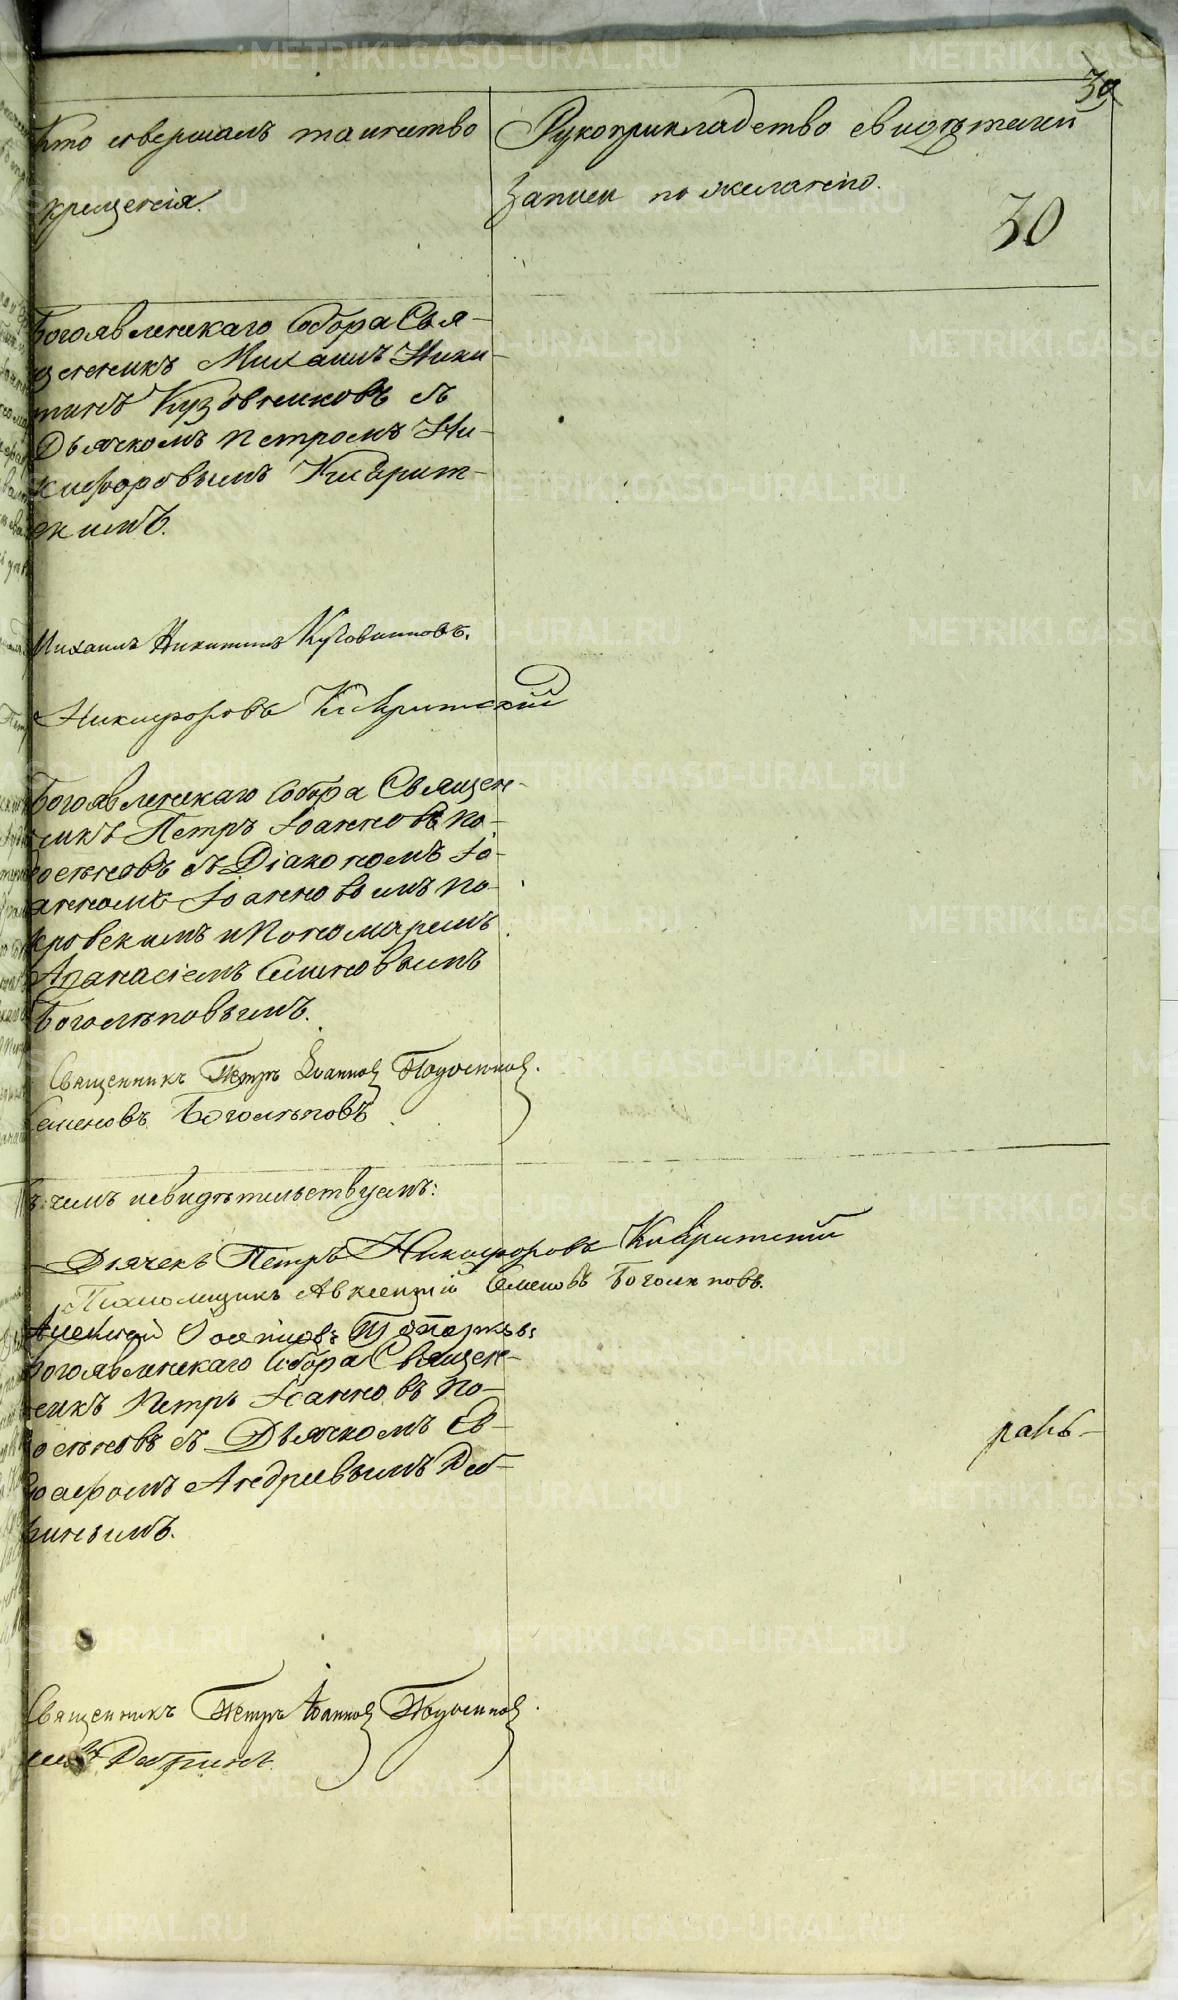 30
Кто совершалъ таинство
крещенія.
Рукоприкладство свидѣтелей
записи по желанію.
30
Богоявленскаго Собора Свя-
щенникъ Михаилъ Ники-
тинъ Кузовниковъ съ
Дьячкомъ Петромъ Ни-
кифоровымъ Киврит-
скимъ.
Михаилъ Никитинъ Кузовниковъ.
Никифоровъ Кивритский
Богоявленскаго Собора Священ-
никъ Петръ Іоанновъ По-
росенковъ съ Діакономъ Іо-
анномъ Іоанновымъ По-
кровскимъ и Пономаремъ
Афанасіемъ Семеновымъ
Боголѣповымъ.
Священникъ Петръ Іоанновъ
Семеновъ Боголѣповъ
въ чемъ и свидѣтельствуемъ:
Дьячекъ Петръ Никифоровъ Кивритский
Псаломщикъ Авксентій Семеновъ Боголѣповъ.
Алексей
Богоявленскаго Собора Священ-
никъ Петръ Іоанновъ По-
росенковъ съ Дьячкомъ
Андреевымъ
Священникъ Петръ Іоанновъ
METRIKI.GASO-URAL.RU